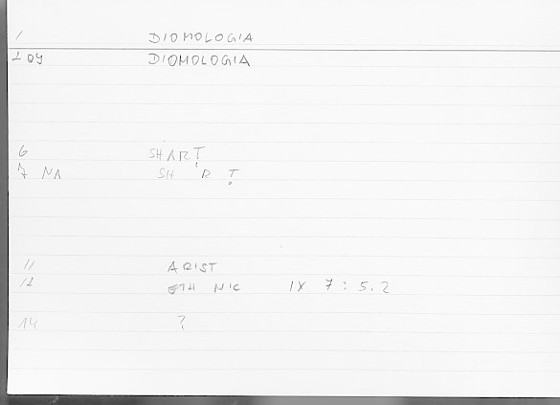 1 DIOMOLOGIA
2 09 DIOMOLOGIA
6 SHART
7 NA SH R T
11 ARIST
12 ETH NIC IX 7 : 5.2
14 ?